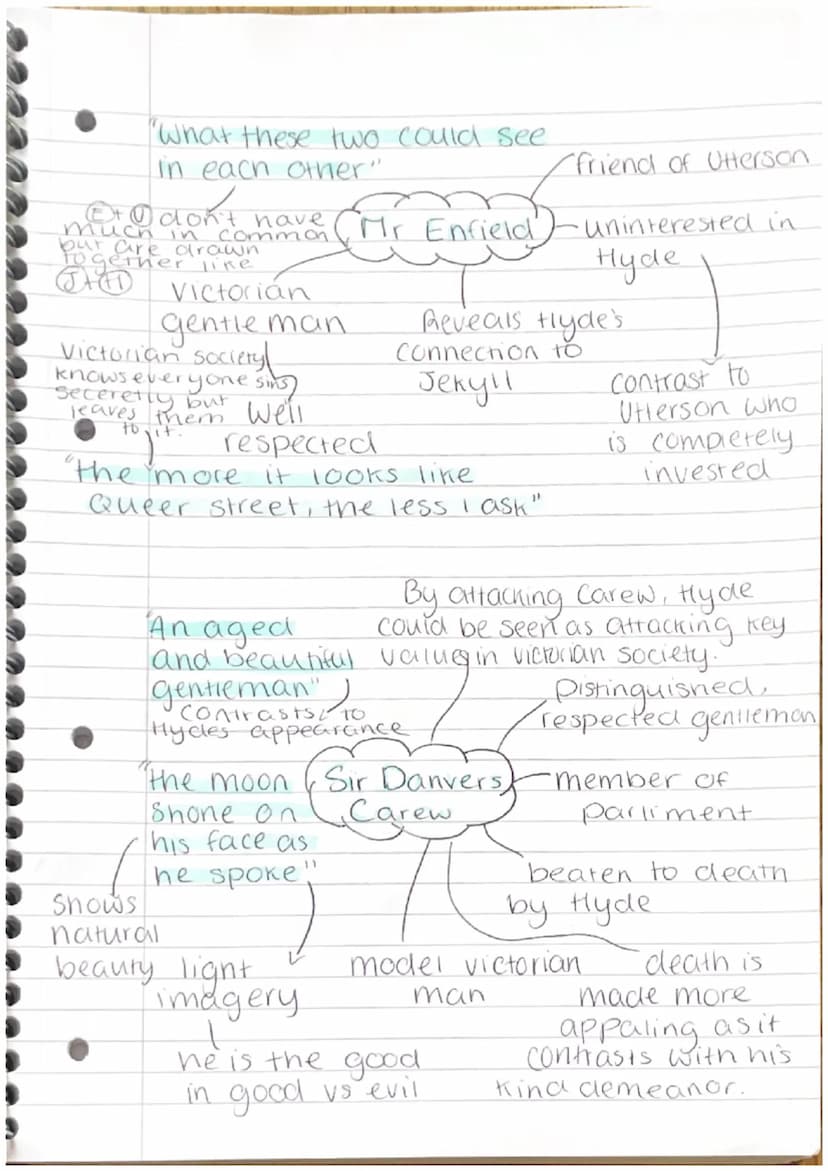 "What these two could see
in each other"
friend of Utterson
Mr Enfield
uninterested in
Hyde
(E)+(U) don't have
much in common
but are drawn
together like
(J)+(H)
Victorian
gentleman
Reveals Hyde's
connection to
Jekyll
contrast to
Utterson who
is completely
invested
Victorian society
knows everyone sins
seceretly but
leaves them
to it.
well
respected
"the more it looks like
Queer street, the less I ask"
By attacking Carew, Hyde
could be seen as attacking key
values in victorian society.
"An aged
and beautiful
gentleman"
contrasts to
Hydes appearance
Distinguished,
respected gentleman
Sir Danvers
Carew
member of
parliment
"the moon
shone on
his face as
he spoke"
beaten to death
by Hyde
shows
natural
beauty
light
imagery
he is the good
in good vs evil
model victorian
man
death is
made more
appaling as it
contrasts with his
kind demeanor.